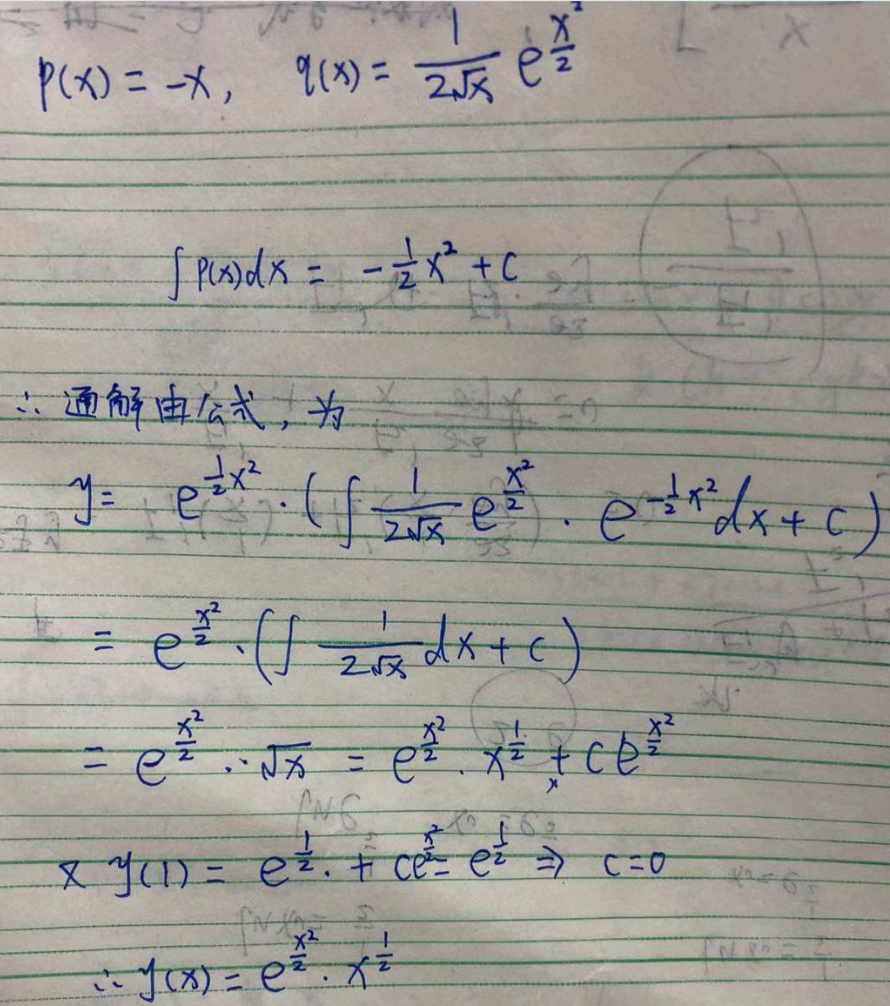 p(x) = -x, q(x) = \frac{1}{2\sqrt{x}} e^{\frac{x^2}{2}}
∫ p(x)dx = -\frac{1}{2}x^2 + C
∴ 通解由公式, 为
y = e^{\frac{1}{2}x^2} · (∫ \frac{1}{2\sqrt{x}} e^{\frac{x^2}{2}} · e^{-\frac{1}{2}x^2} dx + C)
= e^{\frac{x^2}{2}} · (∫ \frac{1}{2\sqrt{x}} dx + C)
= e^{\frac{x^2}{2}} · \sqrt{x} = e^{\frac{x^2}{2}} · x^{\frac{1}{2}} + C e^{\frac{x^2}{2}}
x y(1) = e^{\frac{1}{2}} · + C e^{\frac{x^2}{2}} = e^{\frac{1}{2}} ⇒ C=0
∴ y(x) = e^{\frac{x^2}{2}} · x^{\frac{1}{2}}